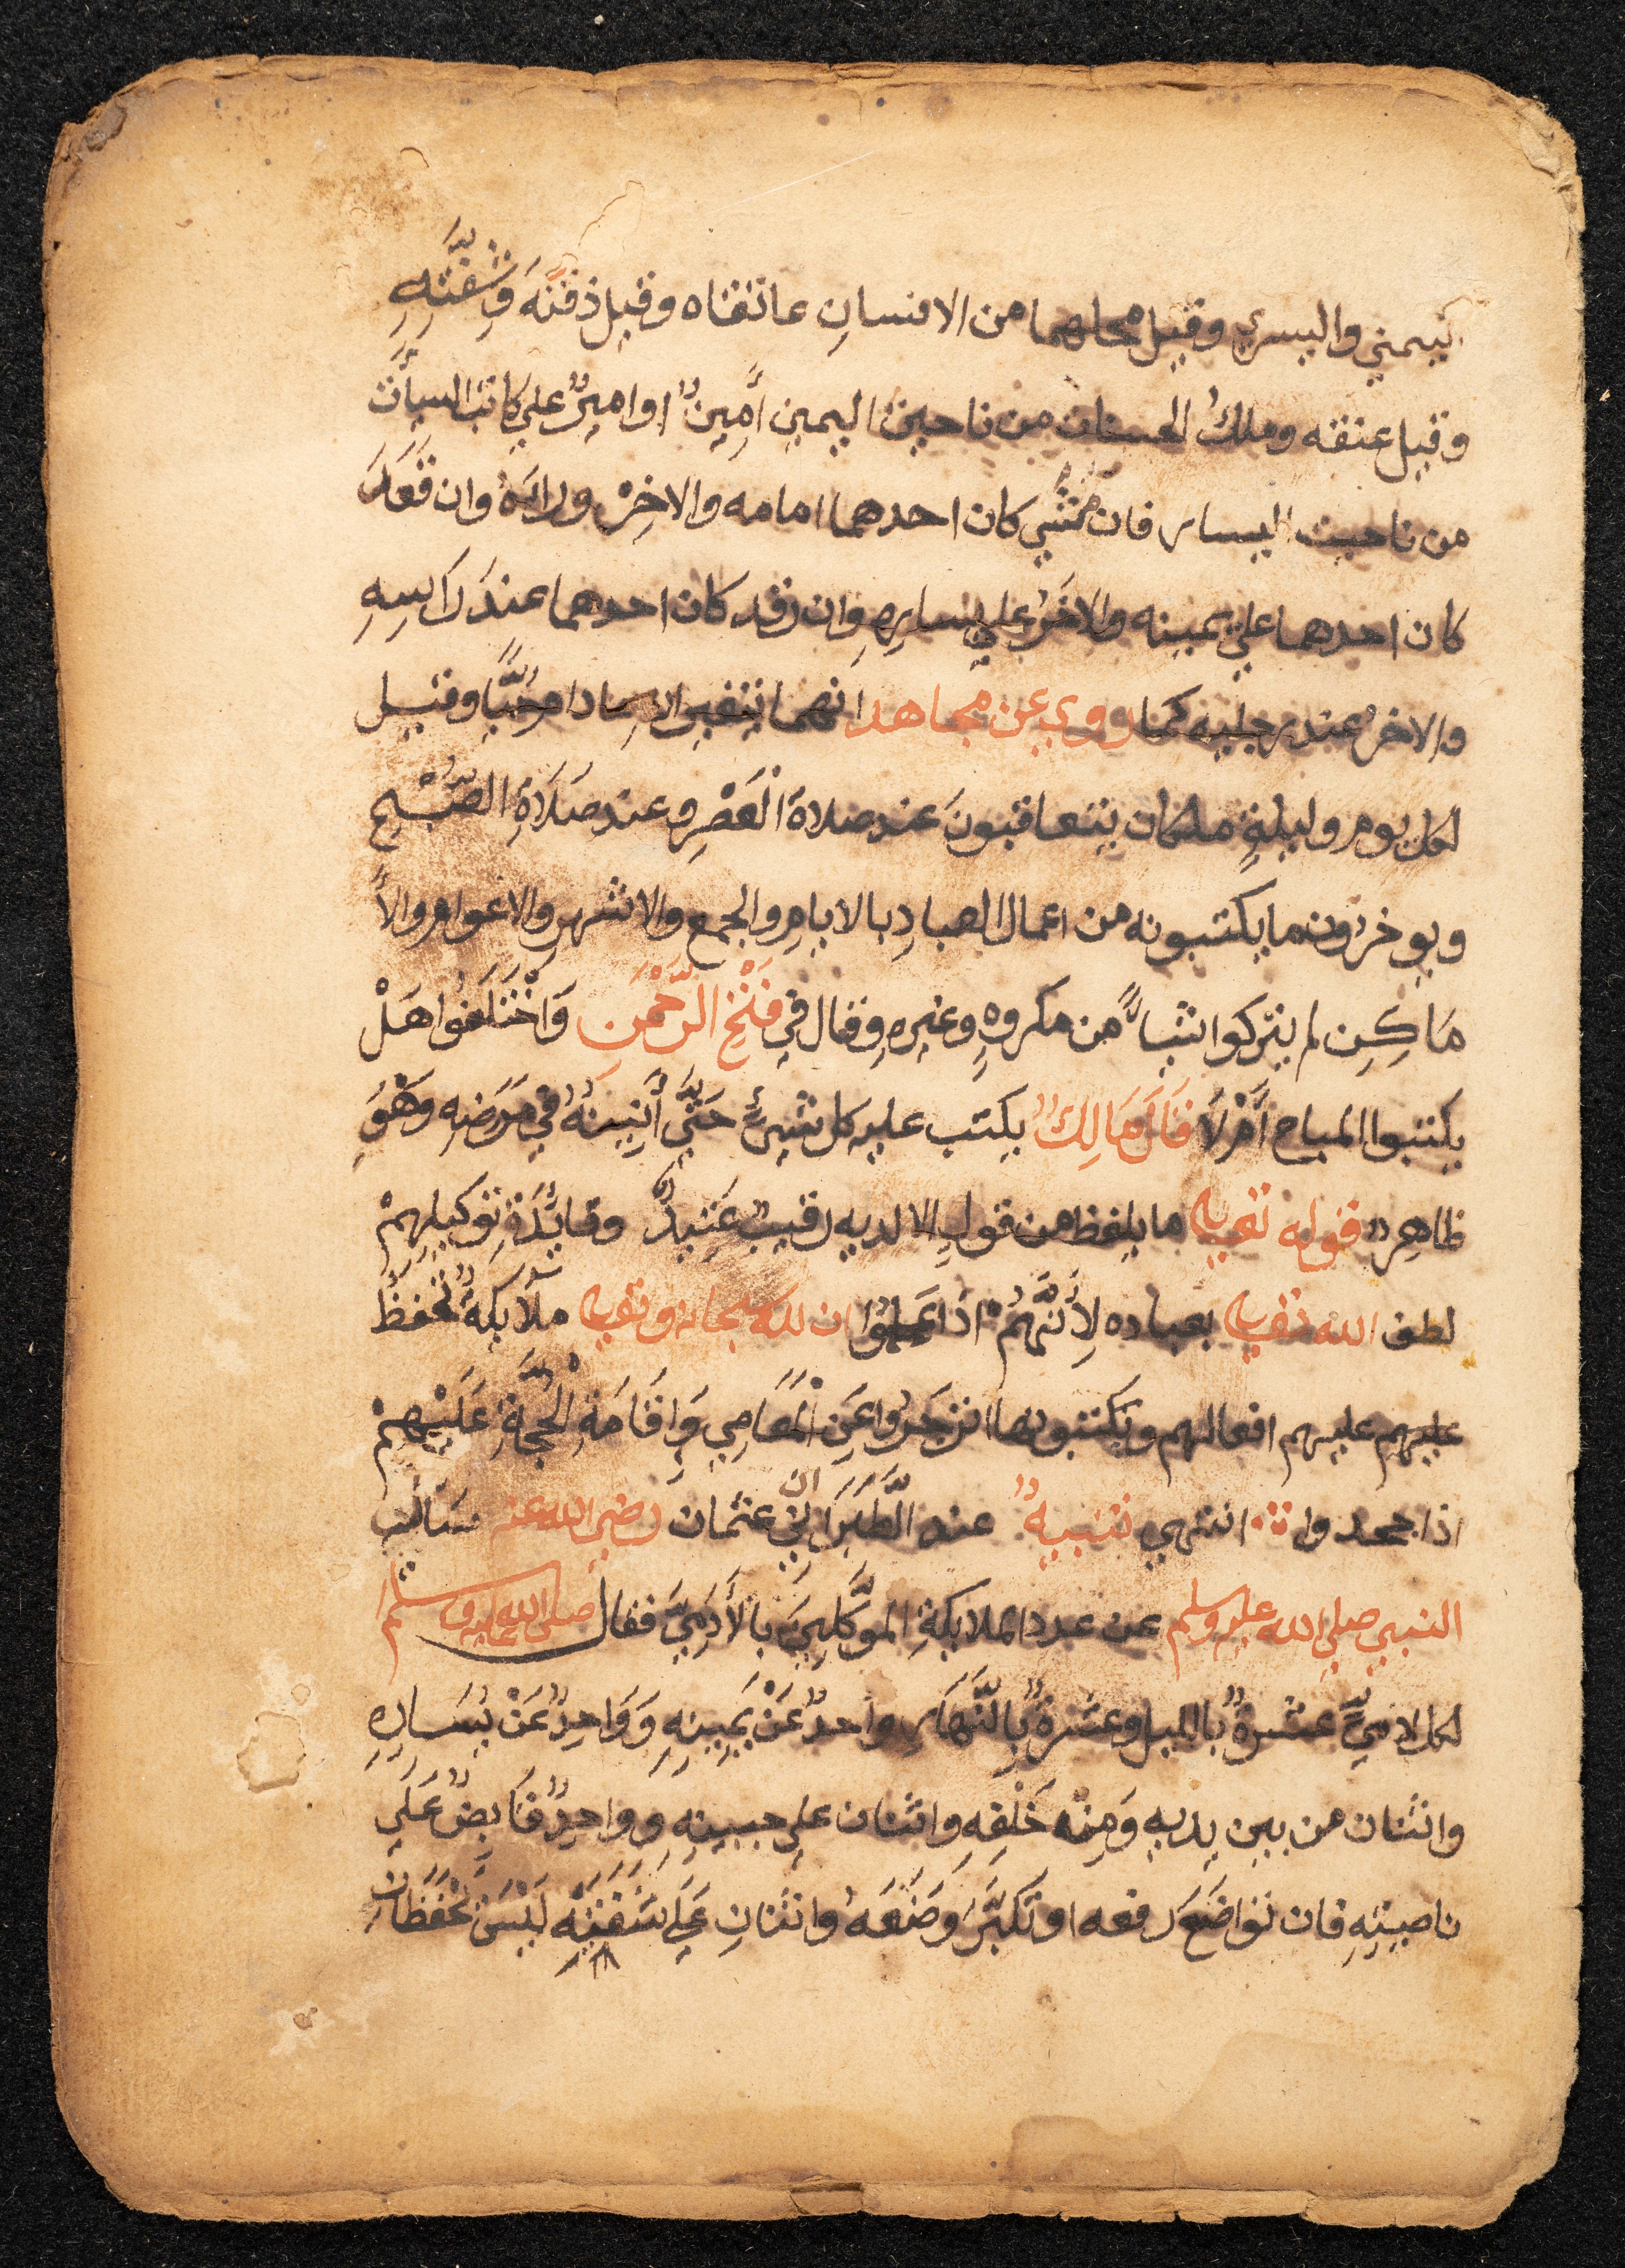 ليمني واليسري وقيل محلهما من الانسانِ عاتقاه وقيل ذقنَهُ وشَفَتِهِ
وقيل عنقه وملكُ الحسنات من ناحيت اليمينِ أَمِينٌ او اميرٌ علي كاتب السيأت
من ناحيت اليسار فان مَشَي كان احدهما امامه والاخرْ ورائَهُ وان قَعَدَ
كان احدهما علي يمينه والاخرُ علي يسارِهِ وان رقد كان احدهما عند رَاسِهِ
والاخرُ عند رجليه كما روي عن مجاهد انهما
لكل يوم وليلةٍ ملكان يتعاقبونَ عند صلاة الْعَصْرِ وعند صَلَاةِ الصُّبْحِ
ويوخرون ما يكتبونه من اعمال العبادِ بالايامِ والجمع والاشهرِ والاعوام والأَ
مَاكِنِ لم يتركوا شيأً من مكروهٍ وغيرِهِ وقال في فَتْحِ الرَّحْمَنِ وَاخْتَلَفُوا هَلْ
يكتبوا المباح أَمْ لَا قَالَ مَالِكٌ يكتب عليه كل شيئٍ حَتَّى أَنِينَهُ في مَرَضِهِ وَهْوَ
ظاهِرٌ قوله تعالي ما يلفظ من قولٍ الا لديه رقيبٌ عَتِيدٌ وفايدَةُ توكيلِهِمْ
لطف الله تعالي بعباده لِأَنَّهُمْ اذا عَلِمُوا ان لله سبحانه وتعالي ملآيكةً تُحفظُ
عليهم عليهم افعالهم ويكتبونها انزجَرُوا عَنِ الْمَعَاصِي وَاِقَامَةِ الْحُجَّةِ عَلَيْهِمْ
اذا جحدوا انتهي تنبيهٌ عند الطَّبَرَانِيِّ ان عثمان رضي الله عنه سَأَلَ
النبي صلي الله عليه وسلم عن عدد الملايكةِ الموَكَّلِينَ بالأَدَمِيِّ فقال صلي الله عليه وسلم
لكل ادميٍّ عشرةٌ بالليل وعشرةٌ بِالنَّهَارِ واحدٌ عَنْ يَمِينِهِ وَوَاحِدٌ عَنْ يَسَارِهِ
واثنان من بين يديهِ وَمِنْه خَلْفِهِ واثنان علي جبينِهِ وواحِدٌ قَابِضٌ عَلَي
ناصيتِهِ فان تَوَاضَعَ رفعه او تَكَبَّرَ وَضَعَهُ واثنانِ عَلَي شَفَتَيْهِ لَيْسَ يَحْفَظَانِ